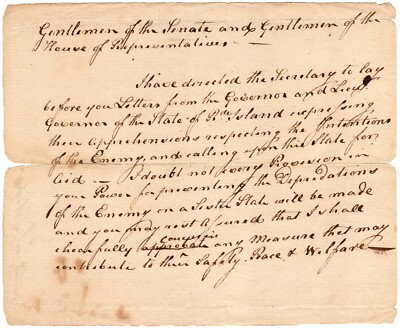 Gentlemen of the Senate and Gentlemen of the
House of Representatives —
I have directed the Secretary to lay
before you Letters from the Governor and Lieut.
Governor of the State of Rho. Island expressing
their Apprehensions respecting the Intentions
of the Enemy, and calling upon this State for
Aid — I doubt not every Provision in
your Power for preventing the Depredations
of the Enemy on a Sister State will be made
and you may rest assured that I shall
concur in
chearfully approbate any Measure that may
contribute to their Safety, Peace & Welfare —